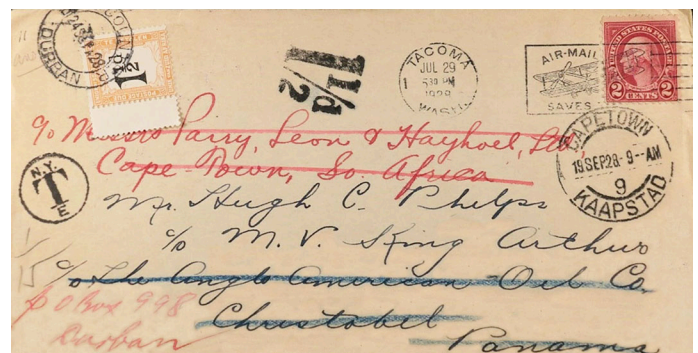 COUNTER
DURBAN
1½D
1½d
TACOMA
JUL 29
5 30 PM
1928
WASH.
1
AIR-MAIL
SAVES
UNITED STATES POSTAGE
2 CENTS 2
CAPETOWN
19 SEP 28 - 9 - AM
9
KAAPSTAD
N.Y.
T
c/o Messrs Parry, Leon & Hayhoe, Ltd,
Cape Town, So. Africa
Mr. Hugh C. Phelps
c/o M. V. King Arthur
c/o The Anglo American Oil Co.
Christobel
Panama
1/15
P O Box 998
Durban